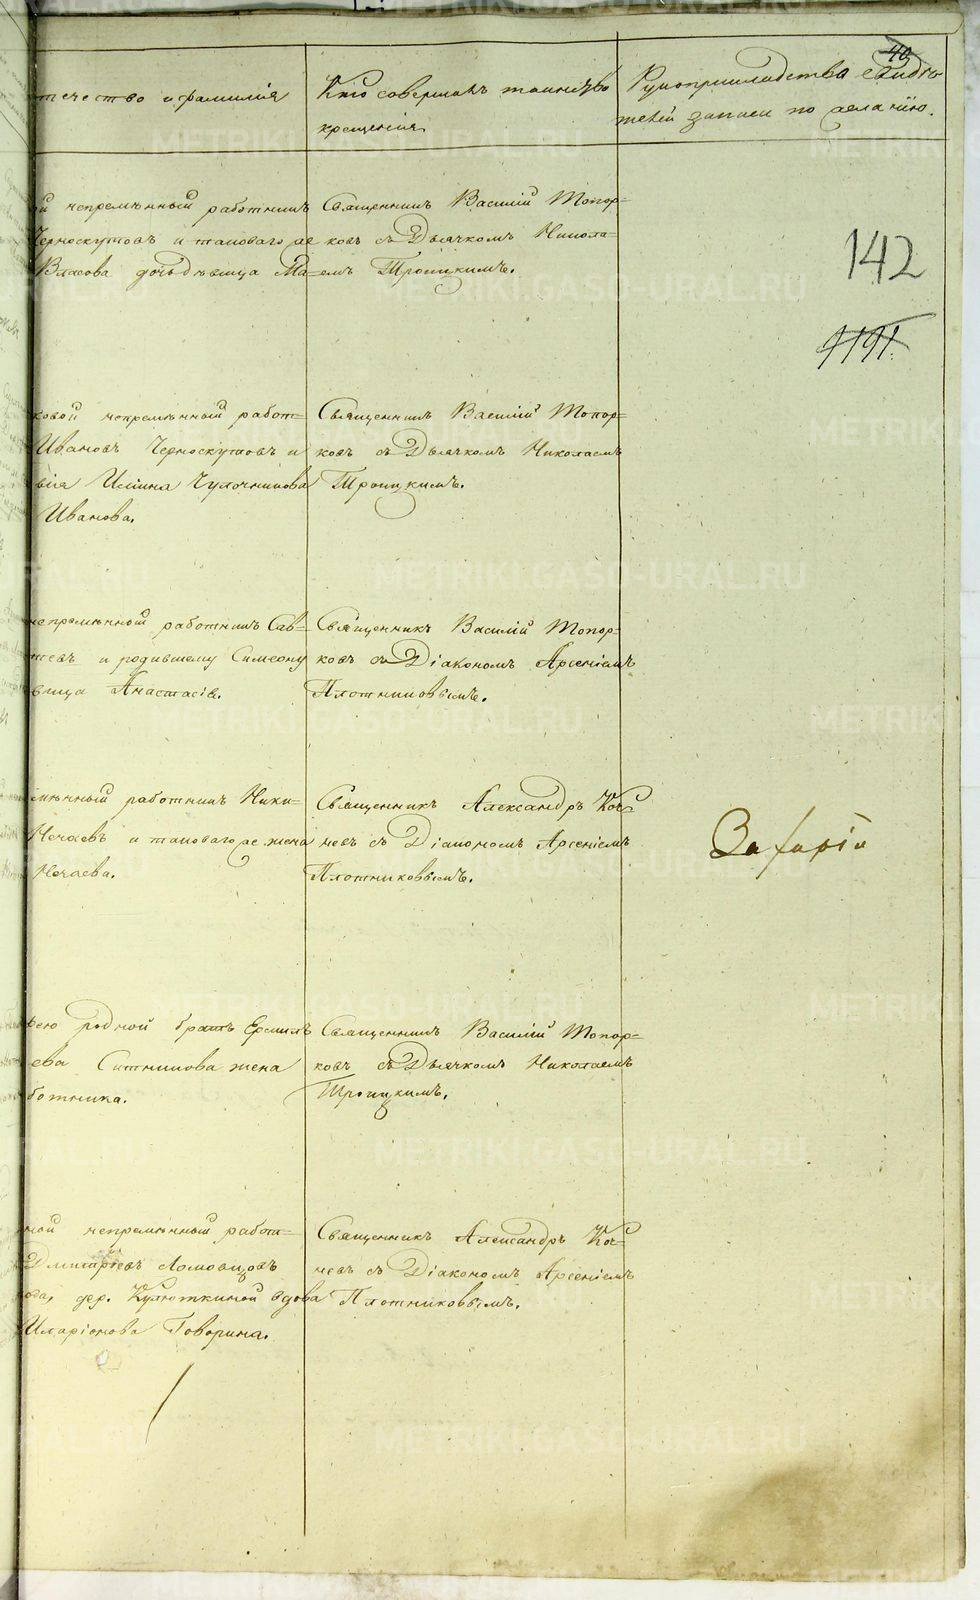 40
отечество и фамилія
Кто совершалъ таинство
крещенія
Рукоприкладства свидѣ-
телей записи по желанію.
142
9191.
ой непремѣнный работникъ
Черноскутовъ и таковаго же
Власова дочь дѣвица Ма-
Священникъ Василій Топор-
ковъ съ Дьячкомъ Никола-
емъ Троицкимъ.
ковой непремѣнный работ-
Ивановъ Черноскутовъ и
вія Ильина Чулочникова
Иванова.
Священникъ Василій Топор-
ковъ съ Дьячкомъ Николаемъ
Троицкимъ.
непремѣнный работникъ Сав-
тевъ и родившему Симеону
вица Анастасія.
Священникъ Василій Топор-
ковъ съ Діакономъ Арсеніемъ
Плотниковымъ.
мѣнный работникъ Ники-
Нечаевъ и таковаго же жена
Нечаева.
Священникъ Александръ Коч-
невъ съ Діакономъ Арсеніемъ
Плотниковымъ.
Захарія
родной братъ Ермилъ
ева Ситникова жена
ботника.
Священникъ Василій Топор-
ковъ съ Дьячкомъ Николаемъ
Троицкимъ.
ной непремѣнный работ-
Дмитріевъ Ломовцовъ
дер. Кулюткиной вдова
Иларіонова Говорина.
Священникъ Александръ Коч-
невъ съ Діакономъ Арсеніемъ
Плотниковымъ.
METRIKI.GASO-URAL.RU